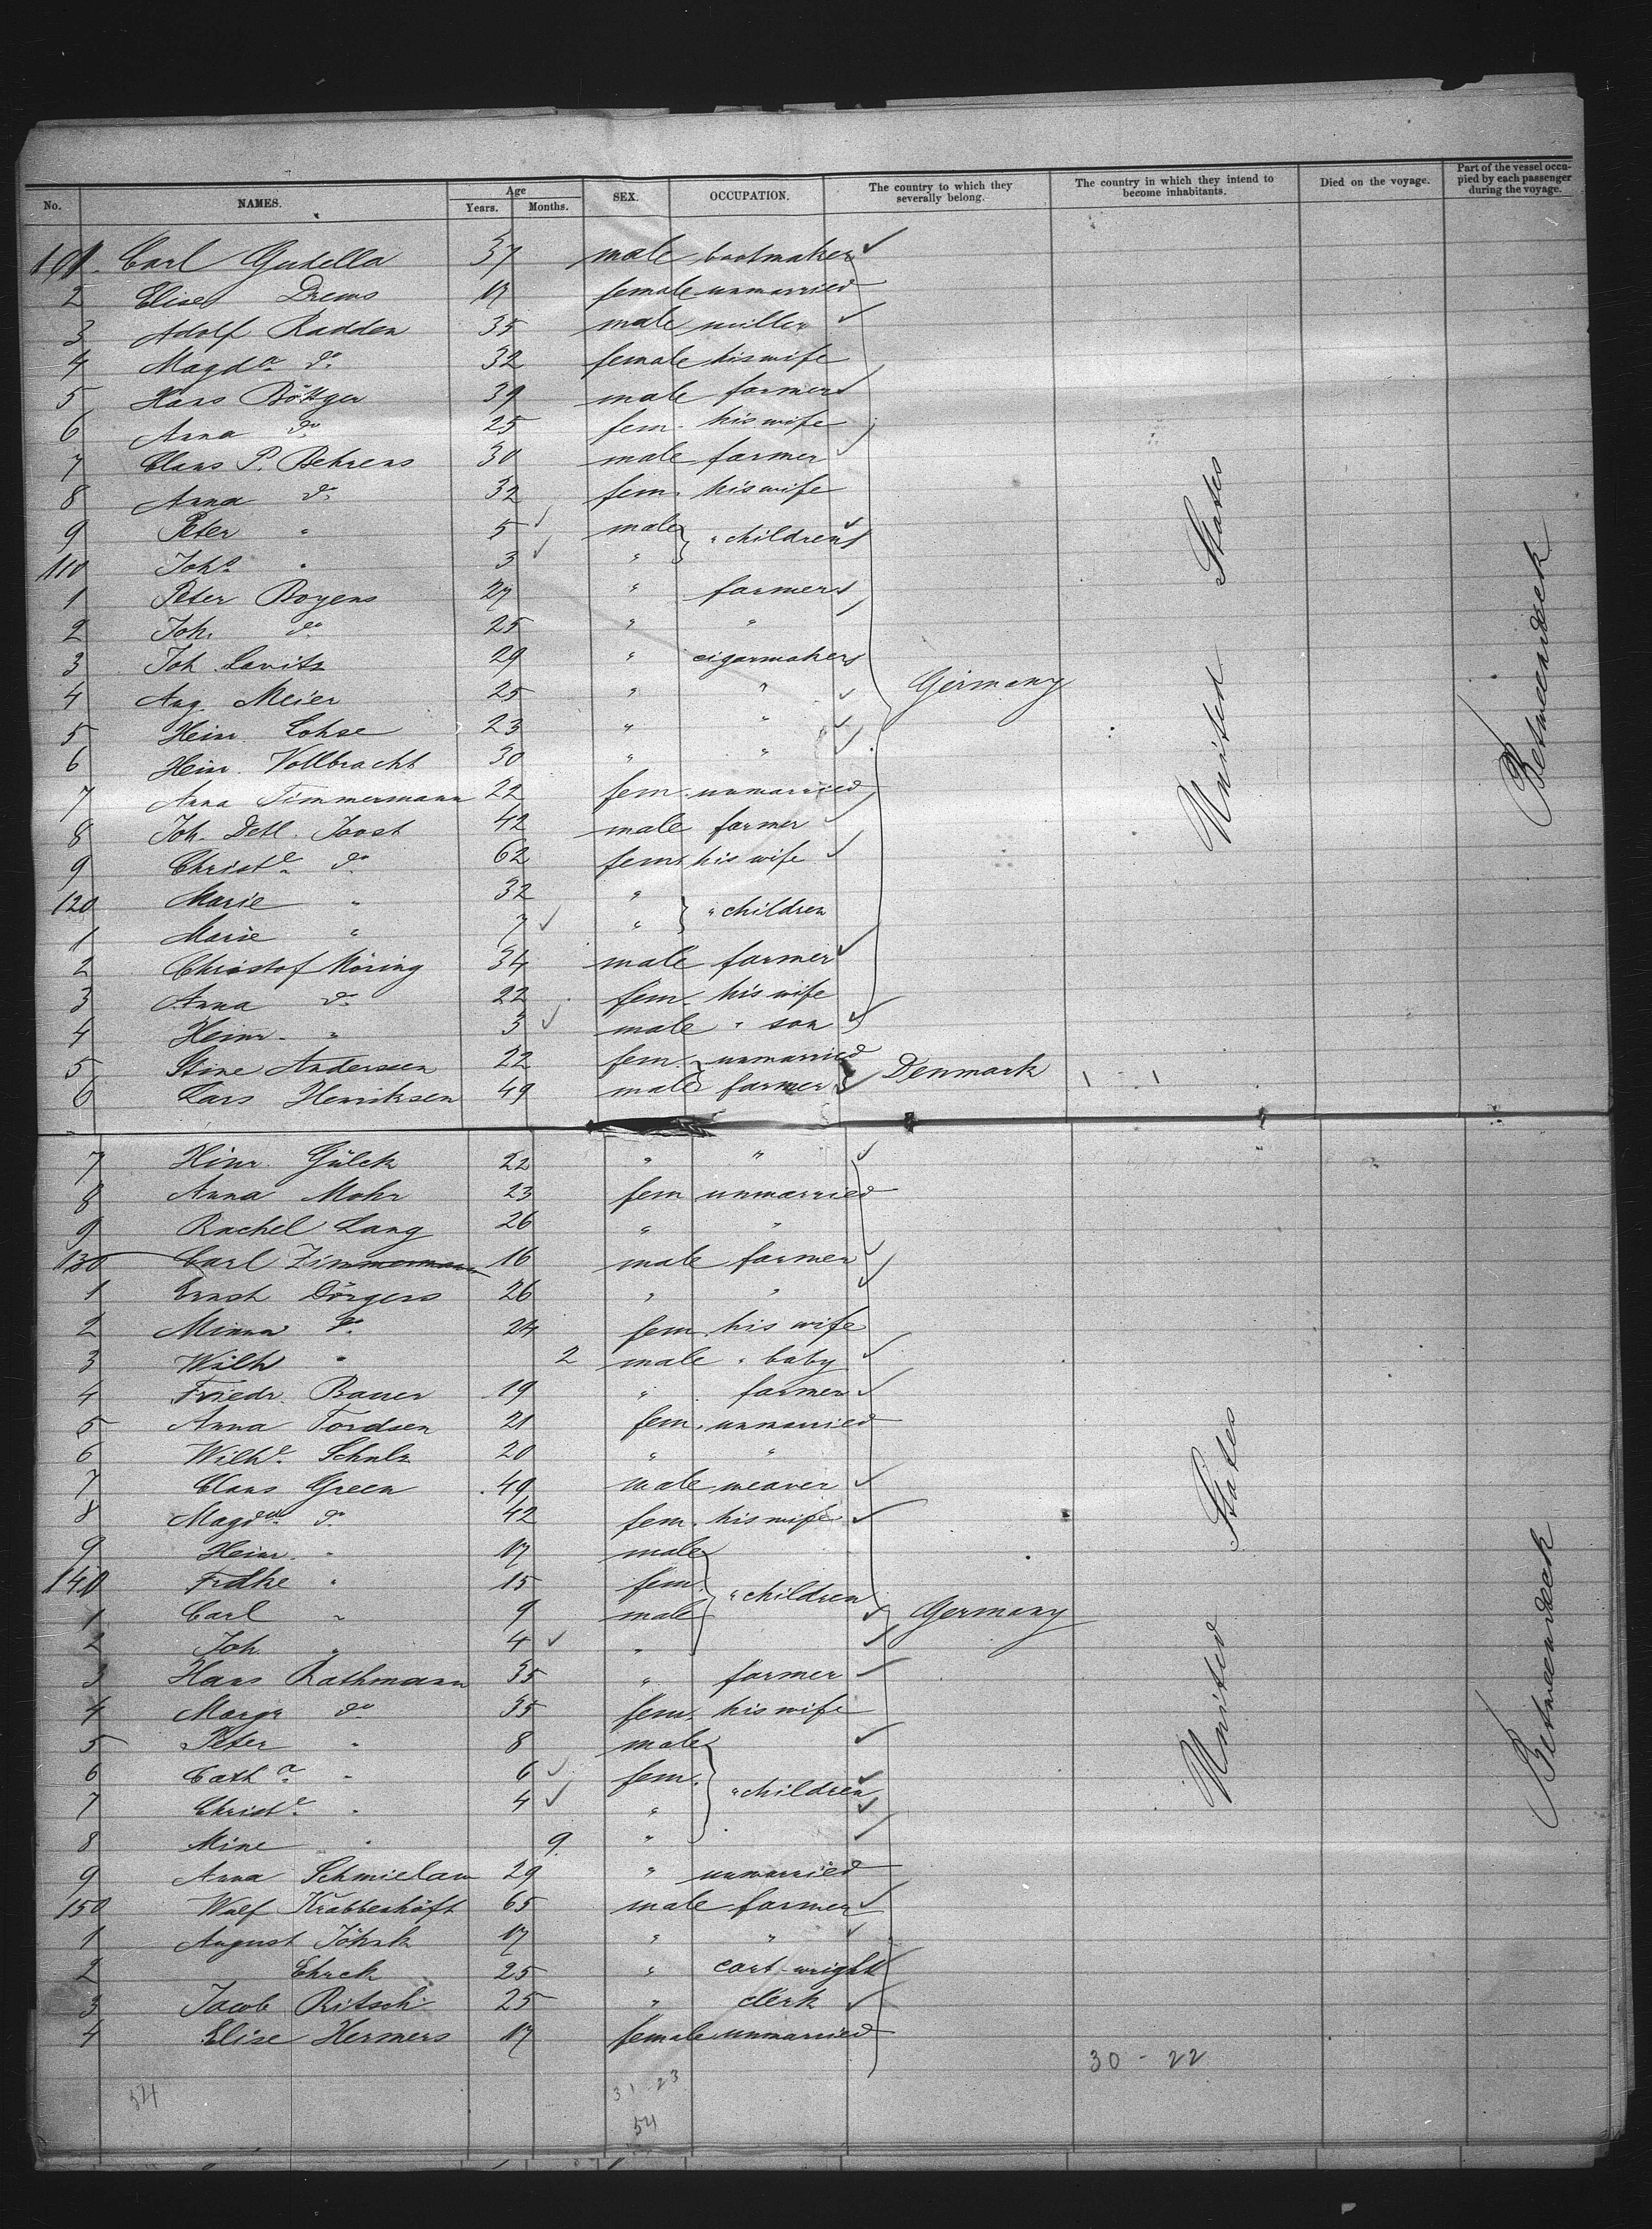 No. NAMES. Age Years. Months. SEX. OCCUPATION. The country to which they severally belong. The country in which they intend to become inhabitants. Died on the voyage. Part of the vessel occupied by each passenger during the voyage.
101. Carl Gudella 37 male bootmaker
2 Elise Drews 17 female unmarried
3 Adolf Radden 35 male miller
4 Magda do 32 female his wife
5 Hans Böttger 39 male farmer
6 Anna do 25 fem. his wife
7 Claus P. Behrens 30 male farmer
8 Anna do 32 fem. his wife
9 Peter " 5 male " children
110 Joha " 3 "
1 Peter Boyens 27 " farmers
2 Joh. do 25 " "
3 Joh. Lavitz 29 " cigarmakers
4 Aug. Meier 25 " " Germany
5 Heinr. Lohse 23 " "
6 Heinr. Vollbracht 30 " "
7 Anna Timmermann 22 fem. unmarried
8 Joh. Detl. Joost 42 male farmer
9 Christe do 62 fem. his wife
120 Marie " 32 " " children
1 Marie " 7 "
2 Christof Möring 34 male farmer
3 Anna do 22 fem. his wife
4 Heinr. " 3 male " son
5 Stine Anderseen 22 fem. unmarried Denmark
6 Lars Henriksen 49 male farmer
United States
Betweendeck
7 Hinr. Gülck 22 " "
8 Anna Mohr 23 fem unmarried
9 Rachel Lang 26 " "
130 Carl Zimmermann 16 male farmer
1 Ernst Dörgers 26 " "
2 Minna do 24 fem. his wife
3 Wilh " 2 male " baby
4 Friedr. Bauer 19 " farmer
5 Anna Tordsen 21 fem. unmarried
6 Wilhe Schulz 20 " "
7 Claus Green 49 male weaver
8 Magda do 42 fem. his wife
9 Heinr. " 17 male
140 Frdke " 15 fem. " children
1 Carl " 9 male Germany
2 Joh. " 4 "
3 Hans Rathmann 35 " farmer
4 Margr do 35 fem. his wife
5 Peter " 8 male
6 Catha " 6 fem. " children
7 Christe " 4 "
8 Mine " 9 "
9 Anna Schmielau 29 " unmarried
150 Wulf Krabbenhöft 65 male farmer
1 August Jöhrk 17 " "
2 Ehrck 25 " cart-wright
3 Jacob Ritsch 25 " clerk
4 Elise Hermers 17 female unmarried
United States
Betweendeck
30 - 22
54 31-23
54